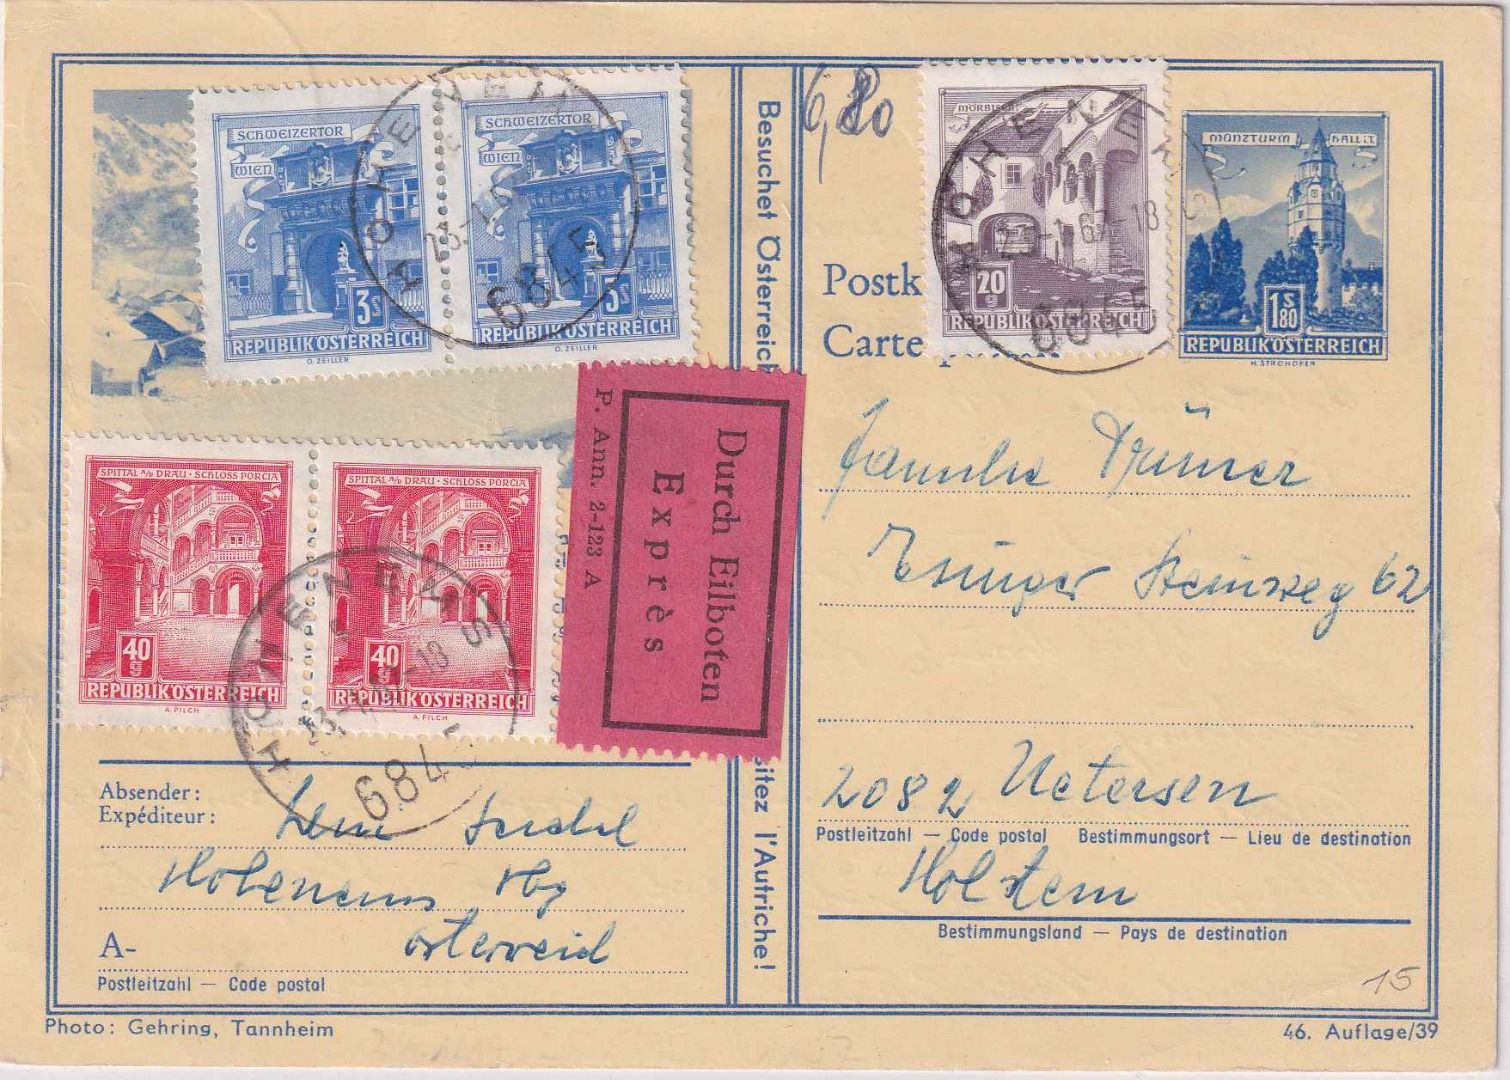 SCHWEIZERTOR
WIEN
3s
REPUBLIK ÖSTERREICH
O. ZEILLER
SCHWEIZERTOR
WIEN
3s
REPUBLIK ÖSTERREICH
O. ZEILLER
HOHENEMS
6845
SPITTAL a/b DRAU · SCHLOSS PORCIA
40
g
REPUBLIK ÖSTERREICH
A. PILCH
SPITTAL a/b DRAU · SCHLOSS PORCIA
40
g
REPUBLIK ÖSTERREICH
A. PILCH
HOHENEMS
Durch Eilboten
Exprès
P. Ann. 2-123 A
Besuchet Österreich
sitez l'Autriche!
6,80
MÖRBISCH
20
g
REPUBLIK ÖSTERREICH
HOHENEMS
MÜNZTURM HALL i.T.
1 S 80
REPUBLIK ÖSTERREICH
H. STROHOFER
Postk
Carte
Familie
Steinweg 62
2082 Uetersen
Postleitzahl — Code postal Bestimmungsort — Lieu de destination
Holstein
Bestimmungsland — Pays de destination
15
Absender:
Expéditeur:
Hohenems Vbg
Österreich
A-
Postleitzahl — Code postal
Photo: Gehring, Tannheim
46. Auflage/39